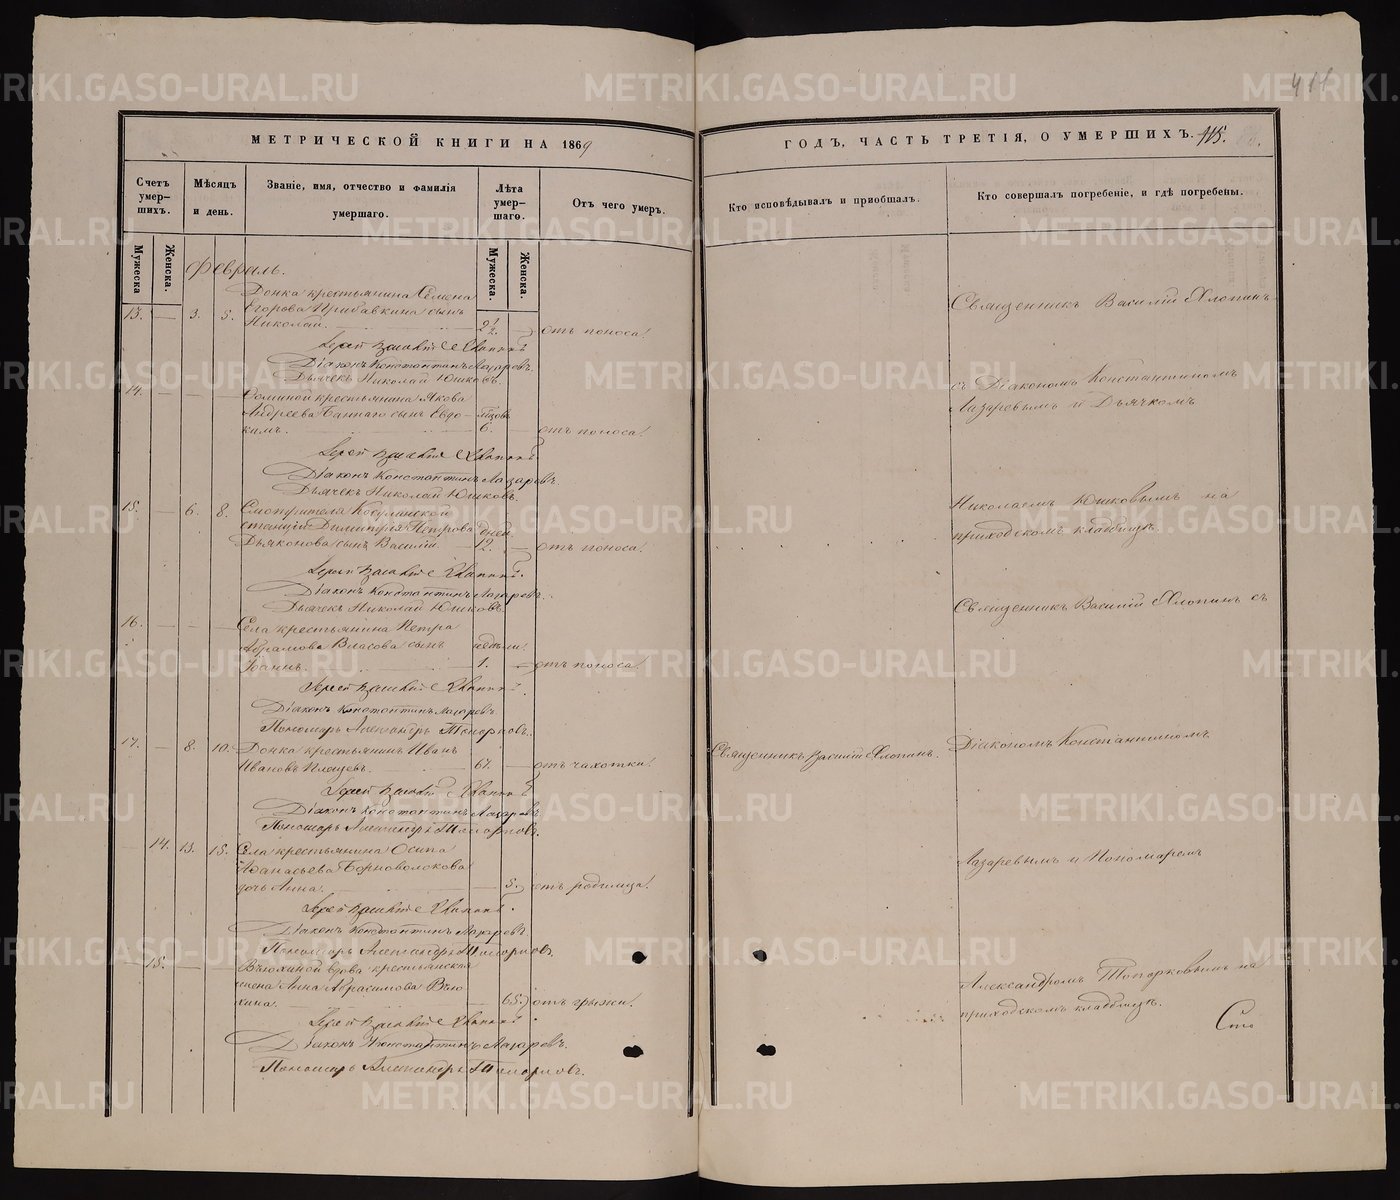 411
МЕТРИЧЕСКОЙ КНИГИ НА 1869
ГОДЪ, ЧАСТЬ ТРЕТІЯ, О УМЕРШИХЪ. 115.
Счетъ умер-шихъ.
Мѣсяцъ и день.
Званіе, имя, отчество и фамилія умершаго.
Лѣта умер-шаго.
Отъ чего умеръ.
Кто исповѣдывалъ и пріобщалъ.
Кто совершалъ погребеніе, и гдѣ погребены.
Мужеска
Женска.
Мужеска.
Женска.
Февраль.
Донка крестьянина Семена
13. — 3. 5. Егорова Прибавкина сынъ
Николай. 2 1/2. — отъ поноса.
Іерей Василій Хлопинъ
Діаконъ Константинъ Лазаревъ.
Дьячекъ Николай Юшковъ.
14. — — — крестьянина Якова
Андреева сынъ Евдо-
кимъ. 6. отъ поноса.
Іерей Василій Хлопинъ
Діаконъ Константинъ Лазаревъ.
Дьячекъ Николай Юшковъ.
15. — 6. 8. Смотрителя Косулинской
станціи Димитрія Петрова дней
Дьяконова сынъ Василій 12. — отъ поноса.
Іерей Василій Хлопинъ.
Діаконъ Константинъ Лазаревъ.
Дьячекъ Николай Юшковъ.
16. — — — Села крестьянина Петра
Абрамова Власова сынъ недѣли
Іоаннъ. 1. — отъ поноса.
Іерей Василій Хлопинъ.
Діаконъ Константинъ Лазаревъ.
Пономарь Александръ Топорковъ.
17. — 8. 10. Донка крестьянинъ Иванъ
Ивановъ 67. — отъ чахотки.
Іерей Василій Хлопинъ
Діаконъ Константинъ Лазаревъ
Пономарь Александръ Топорковъ.
— 14. 13. 15. Села крестьянина Осипа
Аѳанасьева Черноволокова
дочь Анна. — 5. отъ родимца.
Іерей Василій Хлопинъ.
Діаконъ Константинъ Лазаревъ
Пономарь Александръ Топорковъ.
— 15. — — вдова крестьянская
жена Анна Абросимова
— 65. отъ грыжи.
Іерей Василій Хлопинъ.
Діаконъ Константинъ Лазаревъ.
Пономарь Александръ Топорковъ.
Священникъ Василій Хлопинъ.
Священникъ Василій Хлопинъ
съ Діакономъ Константиномъ
Лазаревымъ и Дьячкомъ
Николаемъ Юшковымъ на
приходскомъ кладбищѣ.
Священникъ Василій Хлопинъ съ
Діакономъ Константиномъ
Лазаревымъ и Пономаремъ
Александромъ Топорковымъ на
приходскомъ кладбищѣ.
METRIKI.GASO-URAL.RU